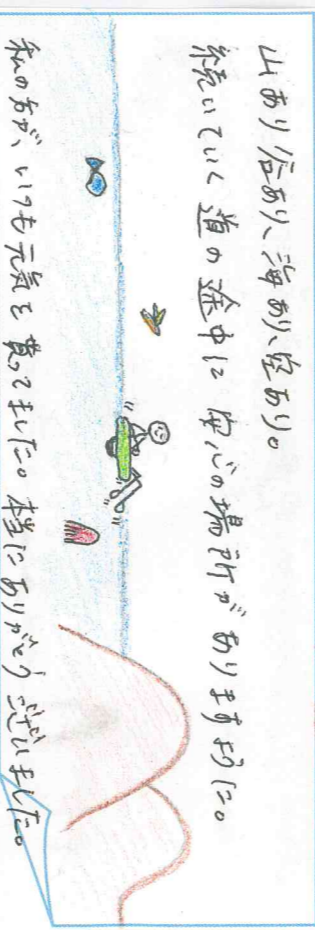 山あり谷あり、海あり、空あり。
続いていく道の途中に安心の場所がありますように。
私の方が、いつも元気を貰ってました。本当にありがとうございました。